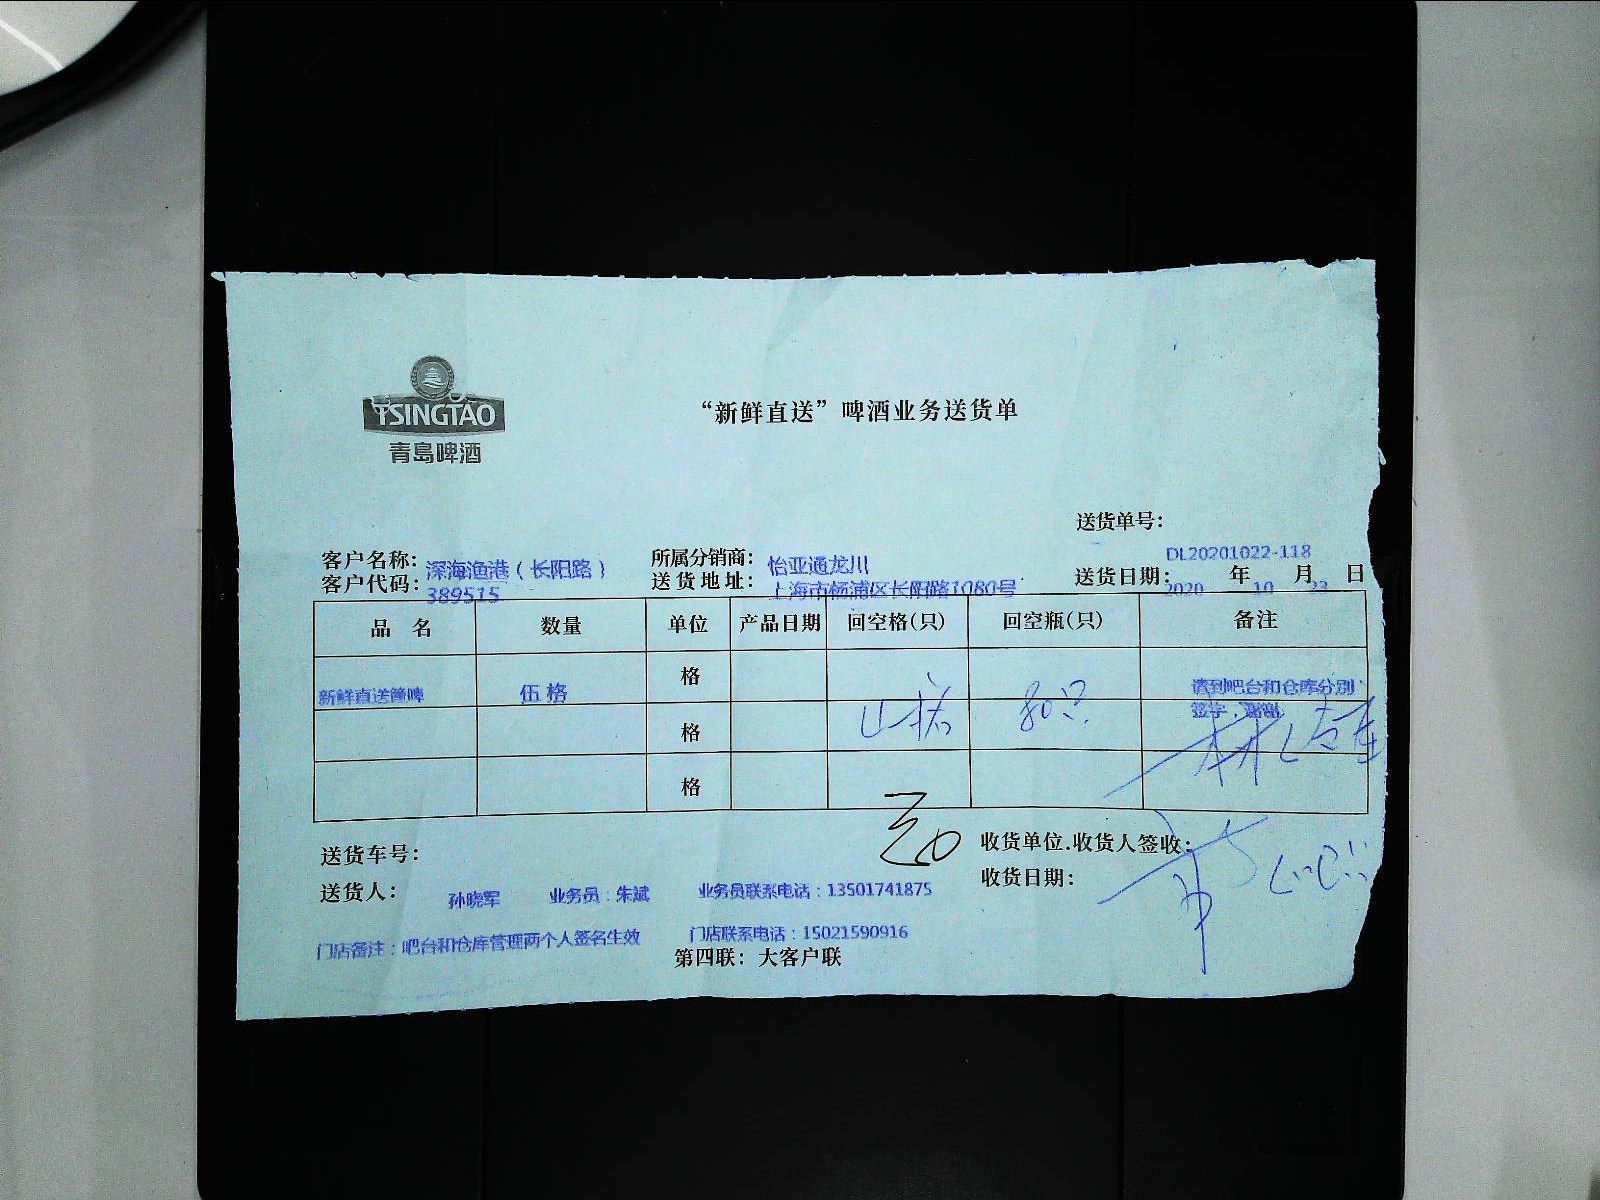 TSINGTAO
青岛啤酒
“新鲜直送”啤酒业务送货单
送货单号：
DL20201022-118
客户名称：深海渔港（长阳路） 所属分销商：怡亚通龙川
客户代码：389515 送货地址：上海市杨浦区长阳路1080号 送货日期：2020 年 10 月 23 日
品 名 数量 单位 产品日期 回空格(只) 回空瓶(只) 备注
新鲜直送罐啤 伍格 格 请到吧台和仓库分别
签字，谢谢
格 80只
格
送货车号： 收货单位.收货人签收：
送货人： 孙晓军 业务员：朱斌 业务员联系电话：13501741875 收货日期：
门店备注：吧台和仓库管理两个人签名生效 门店联系电话：15021590916
第四联：大客户联